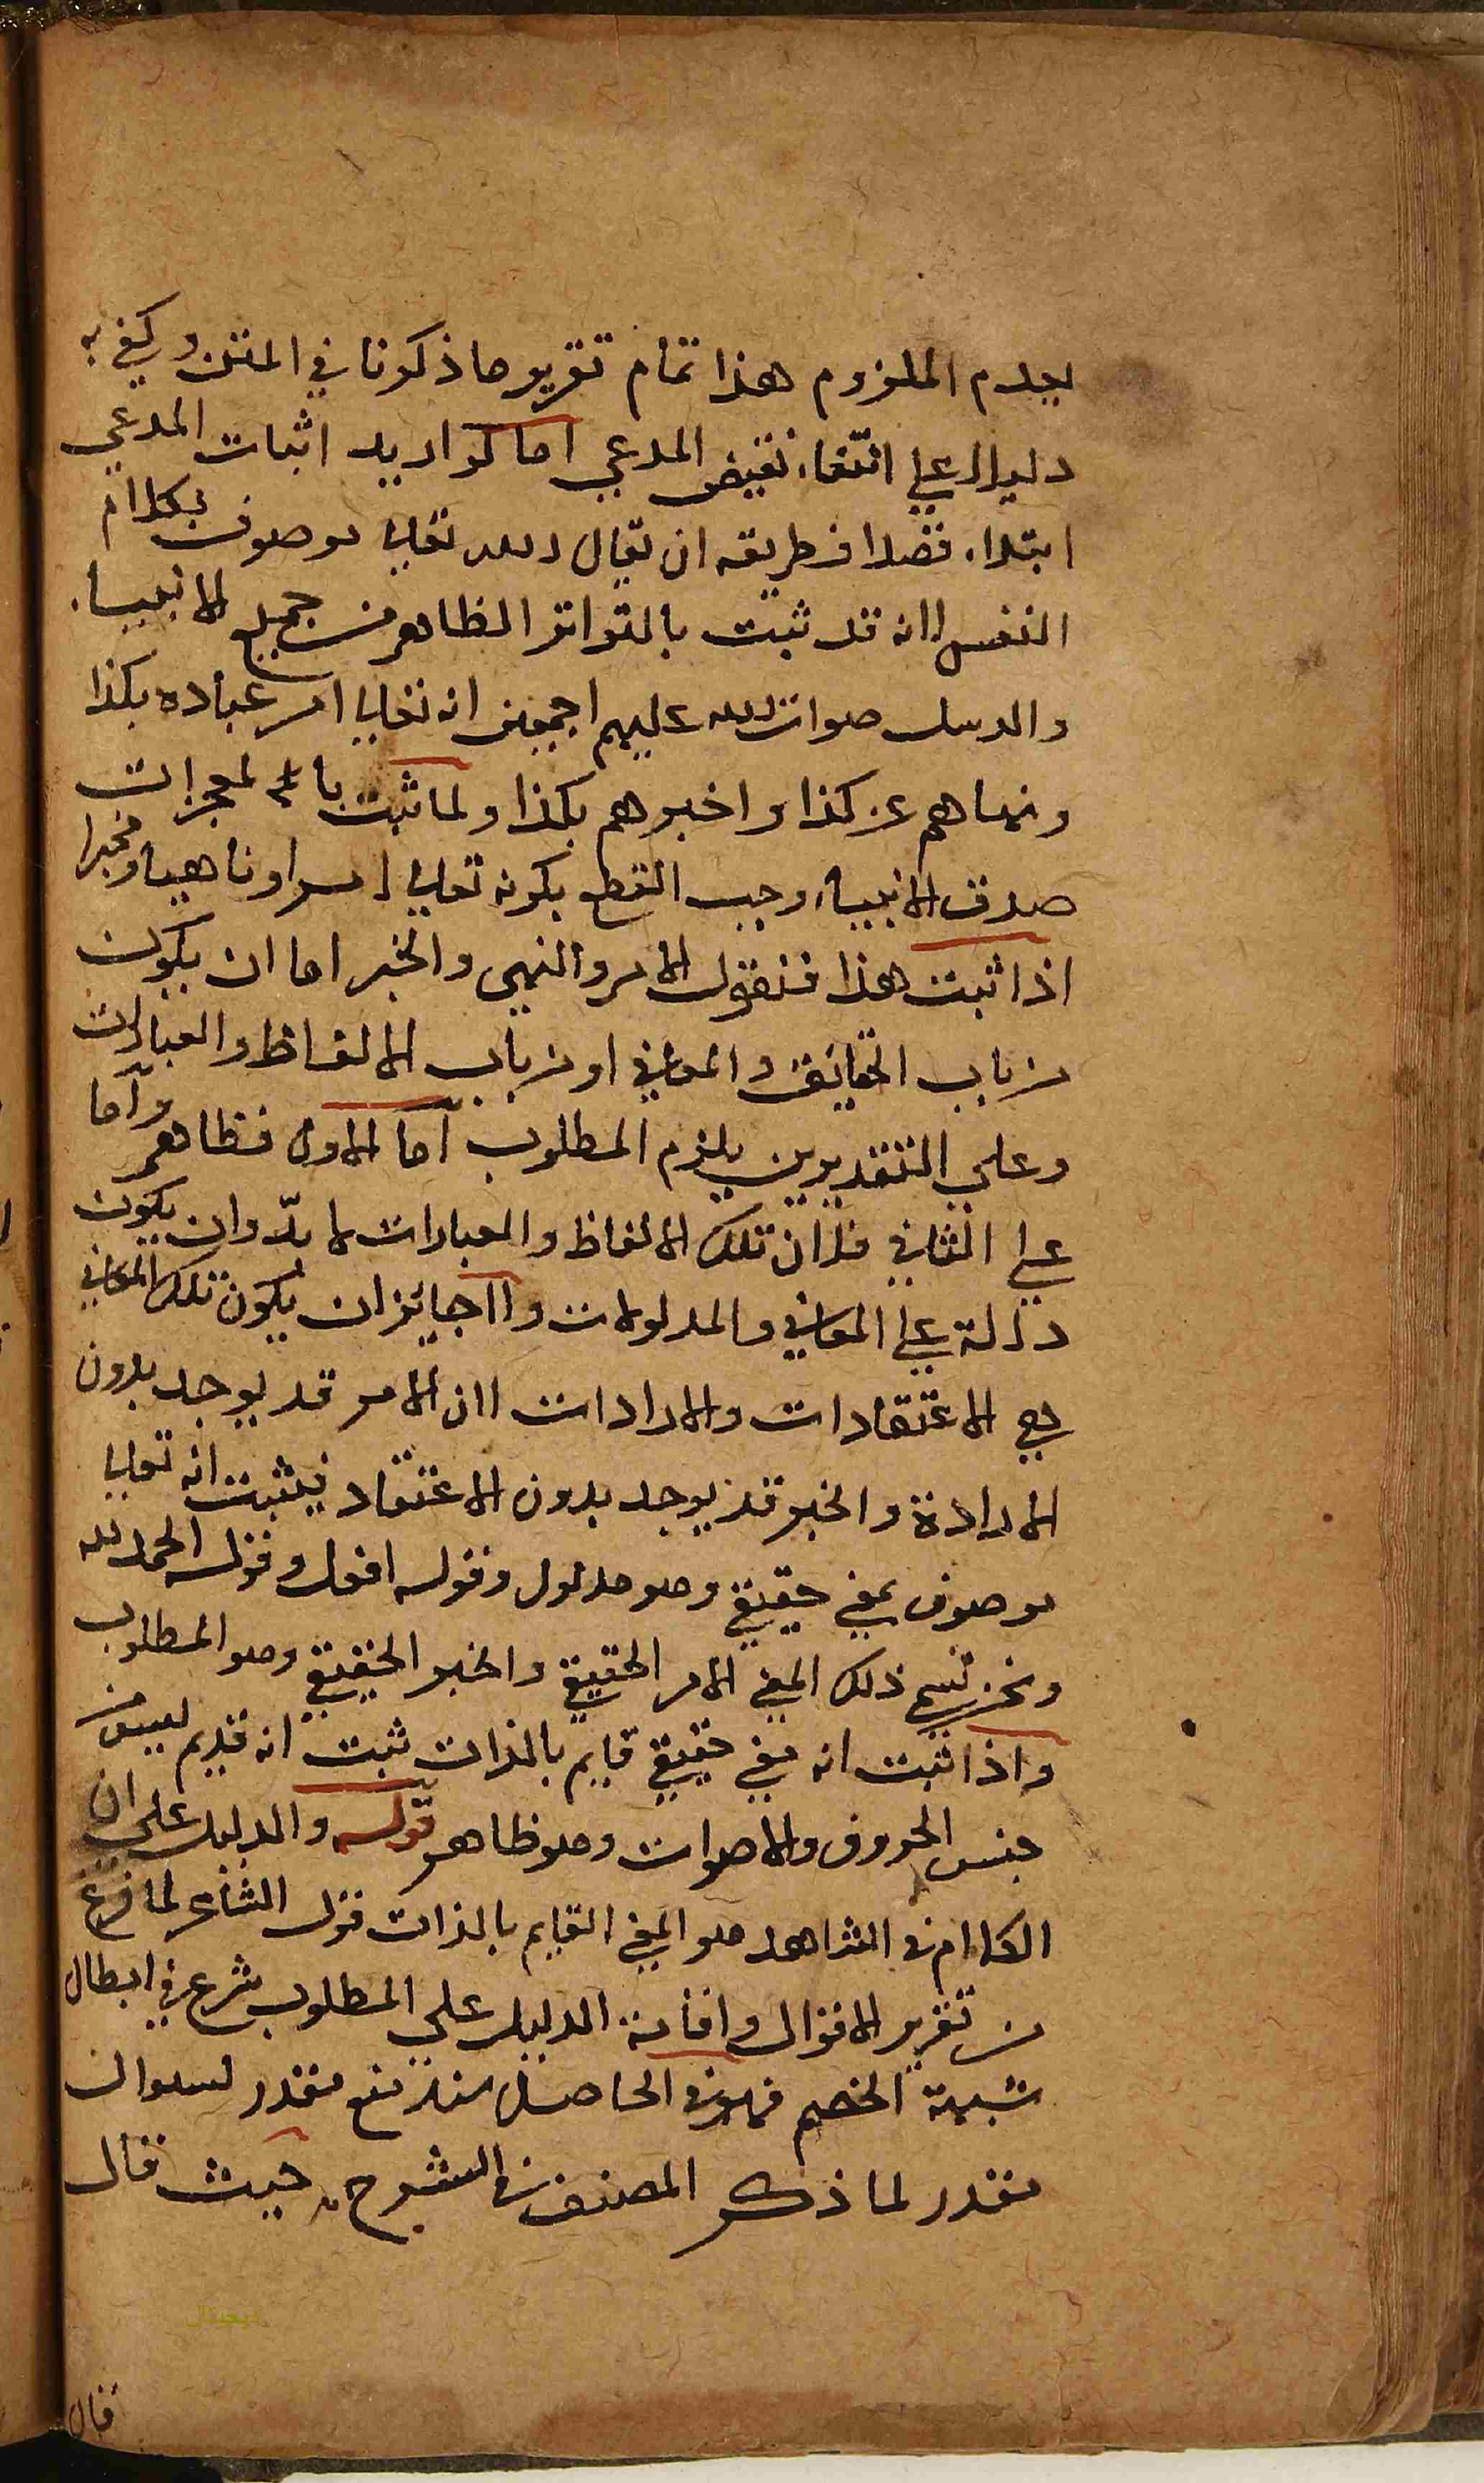 بعدم الملزوم هذا تمام تقرير ما ذكرنا في المتن وكفى به
دليلا على انتفاء نقيض المدعي اما لو اريد اثبات المدعي
ابتداء قصدا فطريقه ان يقال الله تعالى موصوف بكلام
النفس لانه قد ثبت بالتواتر الظاهر من جميع الانبياء
والرسل صلوات الله عليهم اجمعين انه تعالى امر عباده بكذا
ونهاهم عن كذا واخبرهم بكذا ولما ثبت بالمعجزات
صدق الانبياء وجب القطع بكونه تعالى امرا وناهيا ومخبرا
اذا ثبت هذا فنقول الامر والنهي والخبر اما ان يكون
من باب الحقايق والمعاني او من باب الالفاظ والعبارات
وعلى التقديرين يلزم المطلوب اما الاول فظاهر واما
على الثاني فلان تلك الالفاظ والعبارات لا بد وان يكون
دالة على المعاني والمدلولات ولا جايز ان يكون تلك المعاني
هي الاعتقادات والارادات لان الامر قد يوجد بدون
الارادة والخبر قد يوجد بدون الاعتقاد فيثبت انه تعالى
موصوف بمعنى حقيقي وهو مدلول وقوله افعل وقوله الحمد لله
ونحن نسمي ذلك المعنى الامر الحقيقي والخبر الحقيقي وهو المطلوب
واذا ثبت انه معنى حقيقي قايم بالذات ثبت انه قديم ليس من
جنس الحروف والاصوات وهو ظاهر قوله والدليل على ان
الكلام في الشاهد هو المعنى القايم بالذات قول الشاعر لما فرغ
من تقرير الاقوال واقامة الدليل على المطلوب شرع في ابطال
شبهة الخصم فهو في الحاصل منع مقدر لسوال
مقدر لما ذكر المصنف في الشرح حيث قال
قال